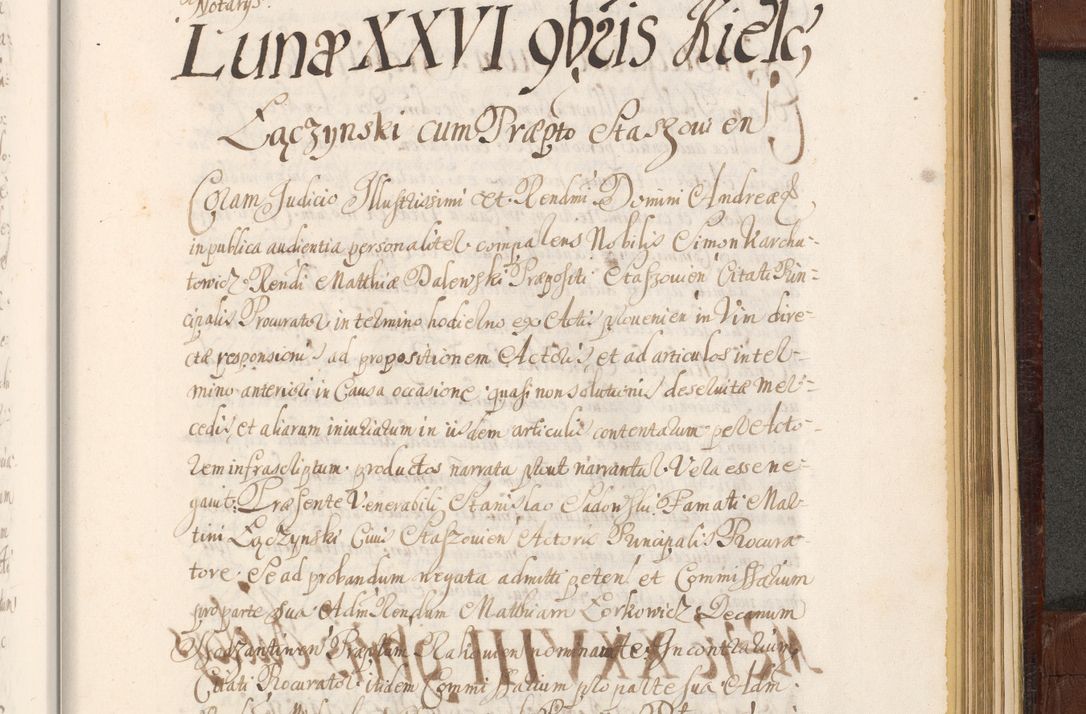 Notarys
Lunæ XXVI 9bris Kielc;
Łączynski cum Præpto Staszovien
Coram Judicio Illustrissimi et Rendmi Domini Andreæ
in publica audientia personaliter comparens Nobilis Simon Karchu-
towicz Rendi Matthiæ Dalewski Præpositi Staszovien Citati Prin-
cipalis Procurator in termino hodierno ex Actis provenien in Vim dire-
ctæ responsionis ad propositionem Actoris et ad articulos in ter-
mino anteriori in Causa occasione quasi non solutionis deservitæ mer-
cedis et aliarum iniuriarum in iisdem articulis contentarum per Acto-
rem infrascriptum productos narrata prout narrantur Vera esse ne-
gavit. Præsente Venerabili Stanislao Sadowski Famati Mar-
tini Łączynski Civis Staszovien Actoris Principalis Procura-
tore Se ad probandum negata admitti peten et Commissarium
pro parte sua Adm Rendum Matthiam Corkowicz Decanum
Præptum Rakovien nominante. In contrarium
Citati Procurator itidem Commissarium pro parte sua Adm